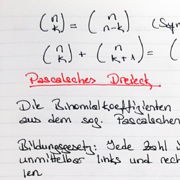 (n k) = (n n-k)
(n k) + (n k+1) = (
Pascalsches Dreieck
Die Binomialkoeffizienten
aus dem sog. Pascalschen
Bildungsgesetz: Jede Zahl
unmittelbar links und rech
len